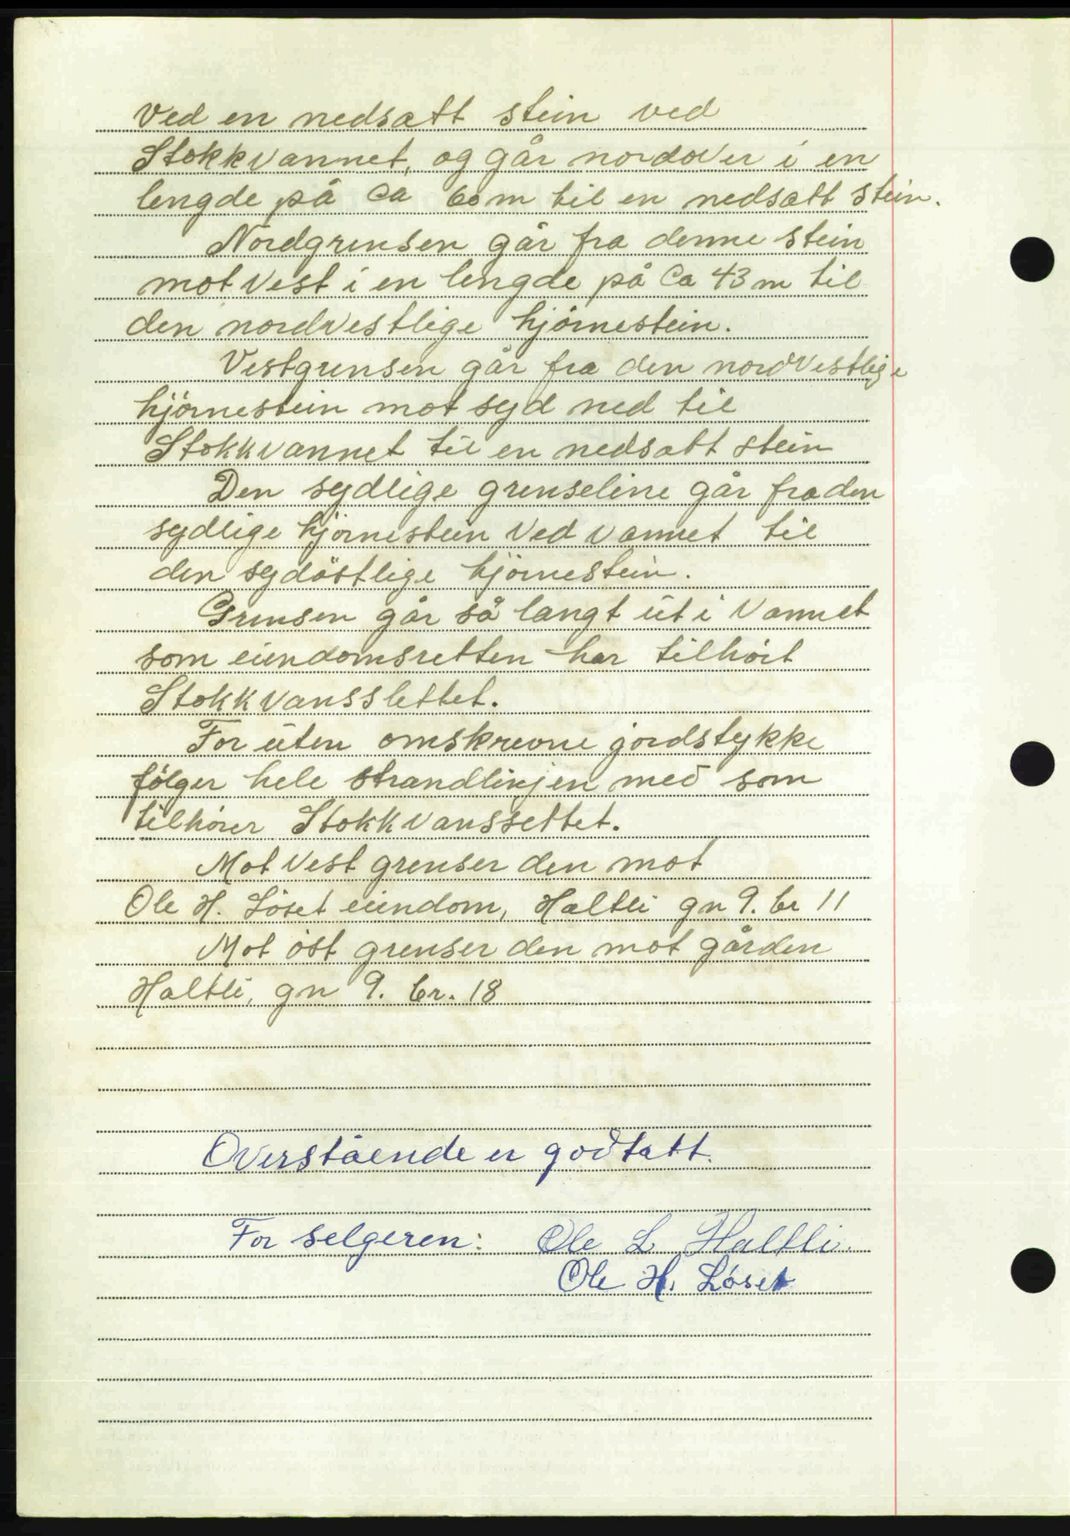 Ved en nedsatt stein ved
Stokkvannet, og går nordover i en
lengde på Ca 60 m til en nedsatt stein.
Nordgrensen går fra denne stein
mot Vest i en lengde på Ca 43 m til
den nordvestlige hjörnestein.
Vestgrensen går fra den nordvestlige
hjörnestein mot syd ned til
Stokkvannet til en nedsatt stein
Den sydlige grenseline går fra den
sydlige hjörnestein Ved Vannet til
den sydöstlige hjörnestein.
Grensen går så langt ut i Vannet
som eiendomsretten har tilhört
Stokkvansslettet.
For uten omskrevne jordstykke
fölger hele strandlinjen med som
tilhörer Stokkvanssettet.
Mot Vest grenser den mot
Ole H. Löset eiendom, Haltli gn 9. br 11
Mot öst grenser den mot gården
Haltli, gn 9. br. 18
Overstående er godtatt.
For selgeren: Ole L Haltli.
Ole H. Löset